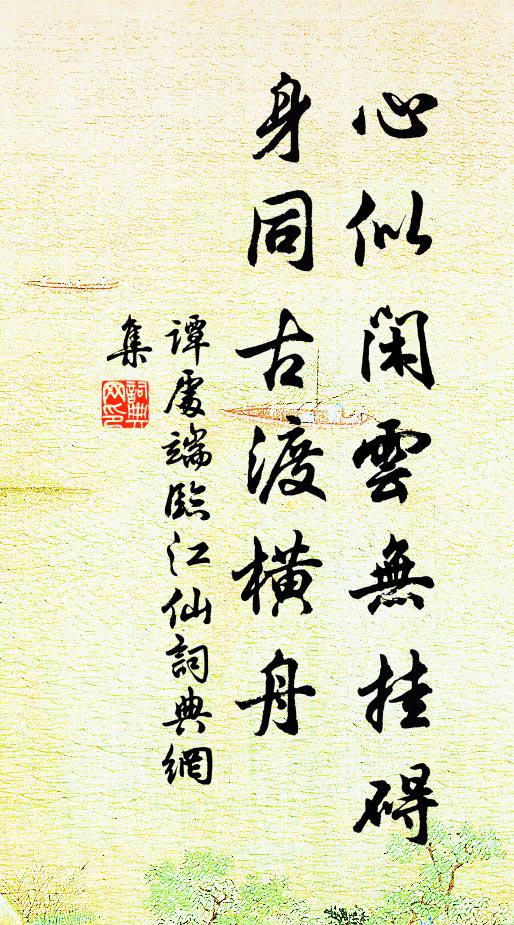 心似閑雲無挂碍
身同古渡橫舟
谭處端臨江仙詞典網
集
詞典
网印